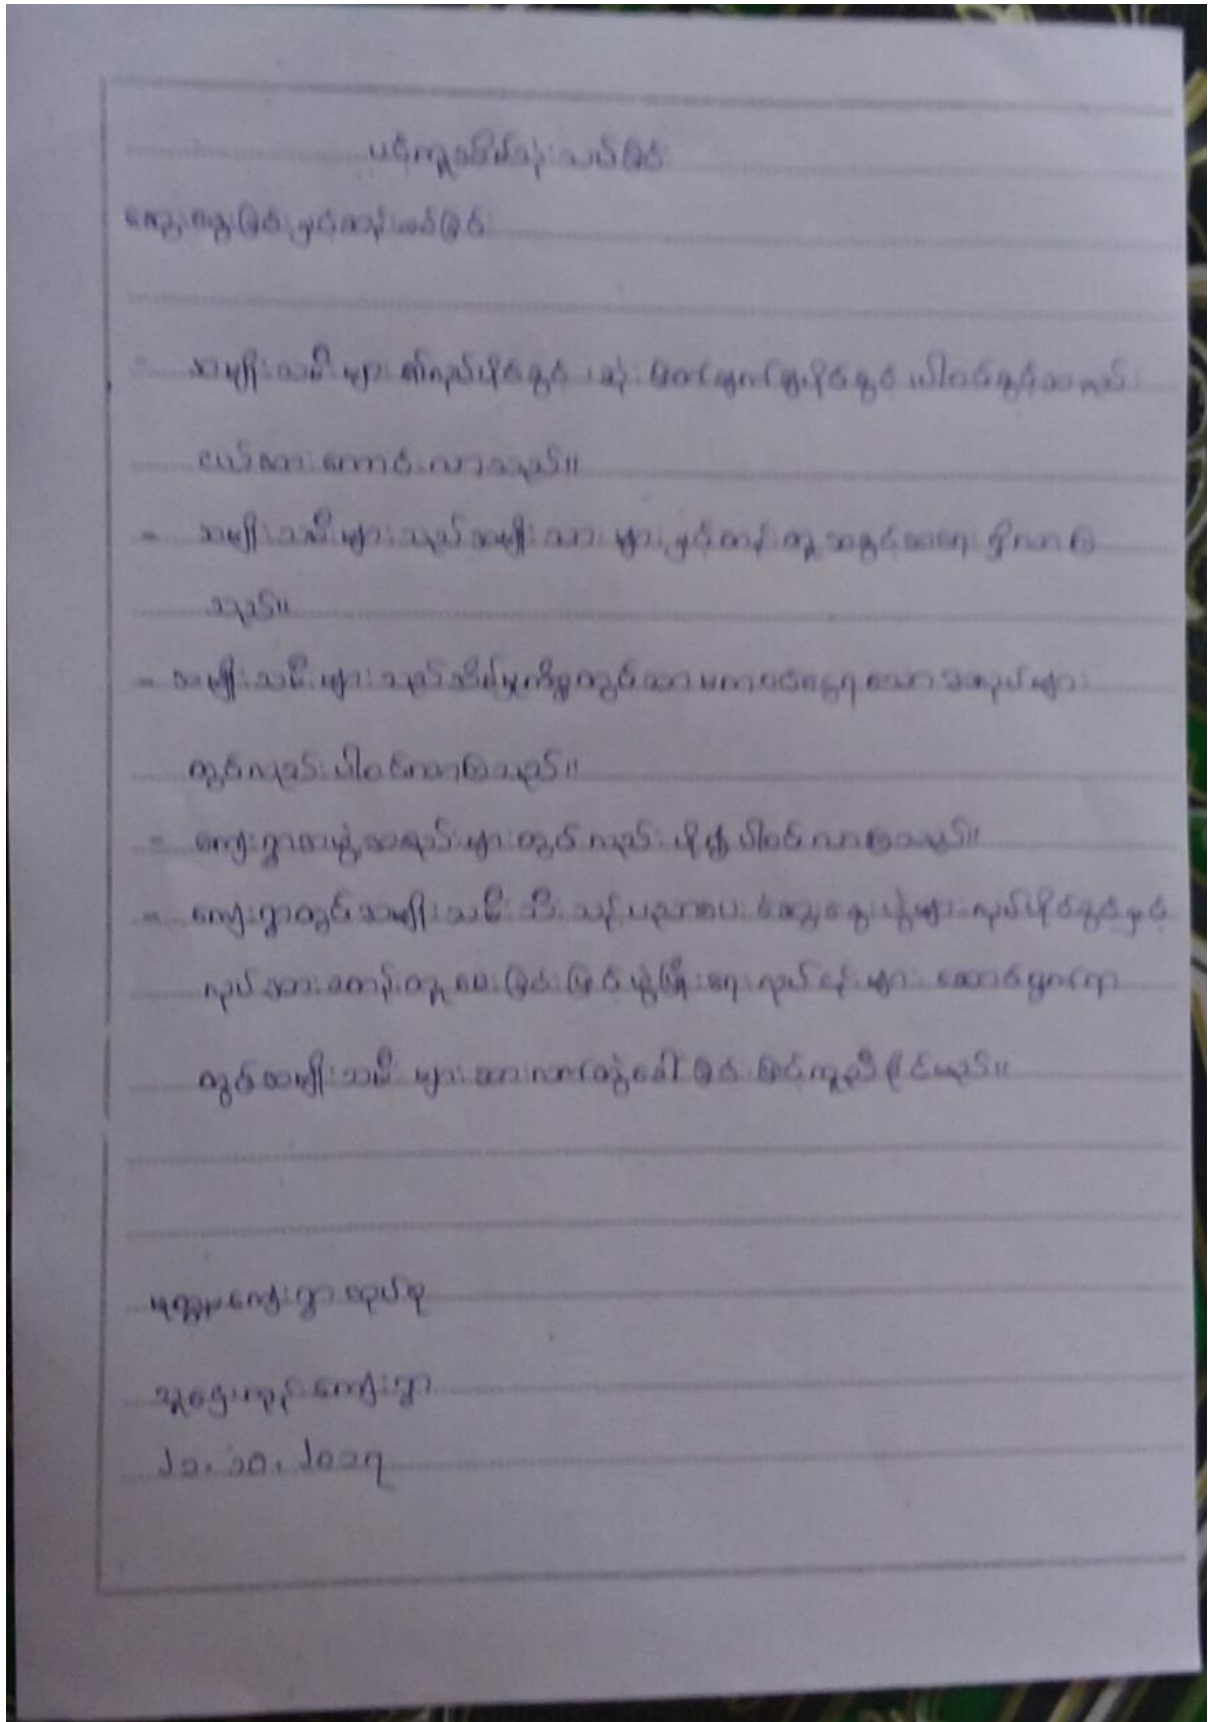 ဆွေးနွေးခြင်းနှင့်ဆန်းစစ်ခြင်း
- အမျိုးသမီးများ၏လုပ်ပိုင်ခွင့်၊ ဆုံးဖြတ်ချက်ချပိုင်ခွင့်၊ ပါဝင်ခွင့်အလွန်
အားကောင်းလာသည်။
- အမျိုးသမီးများသည်အမျိုးသားများနှင့်တန်းတူအခွင့်အရေးရှိလာကြ
သည်။
- အမျိုးသမီးများသည်အိမ်မှုကိစ္စတွင်သာမကငွေရသောအလုပ်များ
တွင်လည်းပါဝင်လာကြသည်။
- ကျေးရွာအဖွဲ့အစည်းများတွင်လည်းပိုမိုပါဝင်လာကြသည်။
- ကျေးရွာတွင်အမျိုးသမီးသီးသန့်ပညာပေးဆွေးနွေးပွဲများလုပ်ပိုင်ခွင့်နှင့်
လုပ်အားခတန်းတူပေးခြင်းဖြင့်ဖွံ့ဖြိုးရေးလုပ်ငန်းများဆောင်ရွက်ရာ
တွင်အမျိုးသမီးများအားလက်တွဲခေါ်ခြင်းဖြင့်ကူညီနိုင်မည်။
ကျေးရွာအုပ်စု
ကျေးရွာ
၂၁. ၁၀. ၂၀၁၇